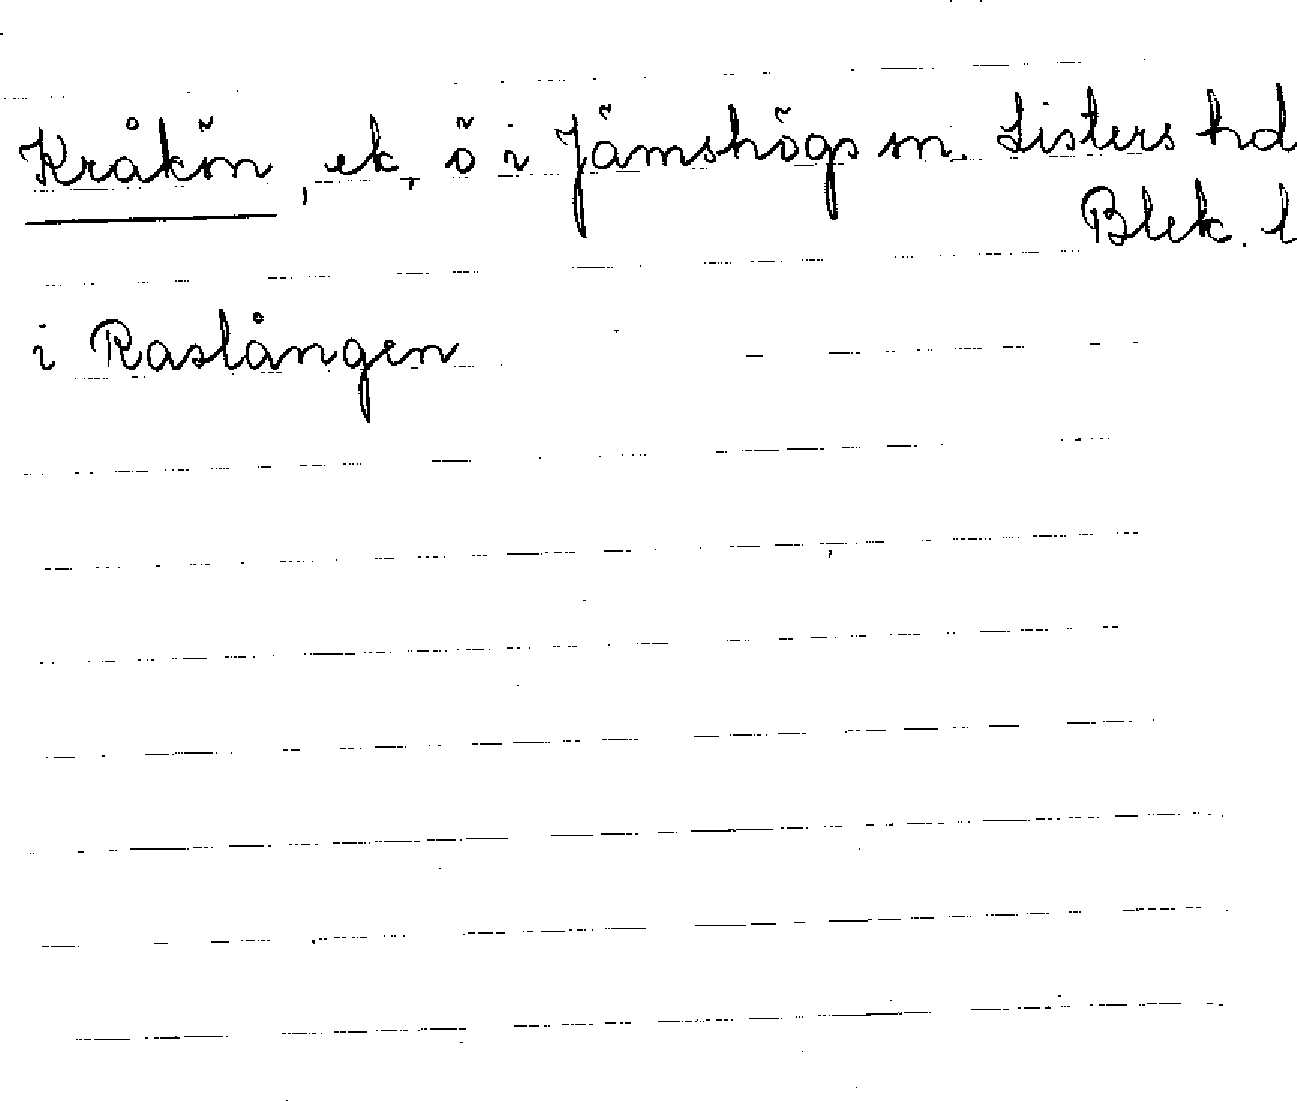 Kråkön, ek. ö i Jämshögs sn. Listers hd
Blek. l
i Raslången